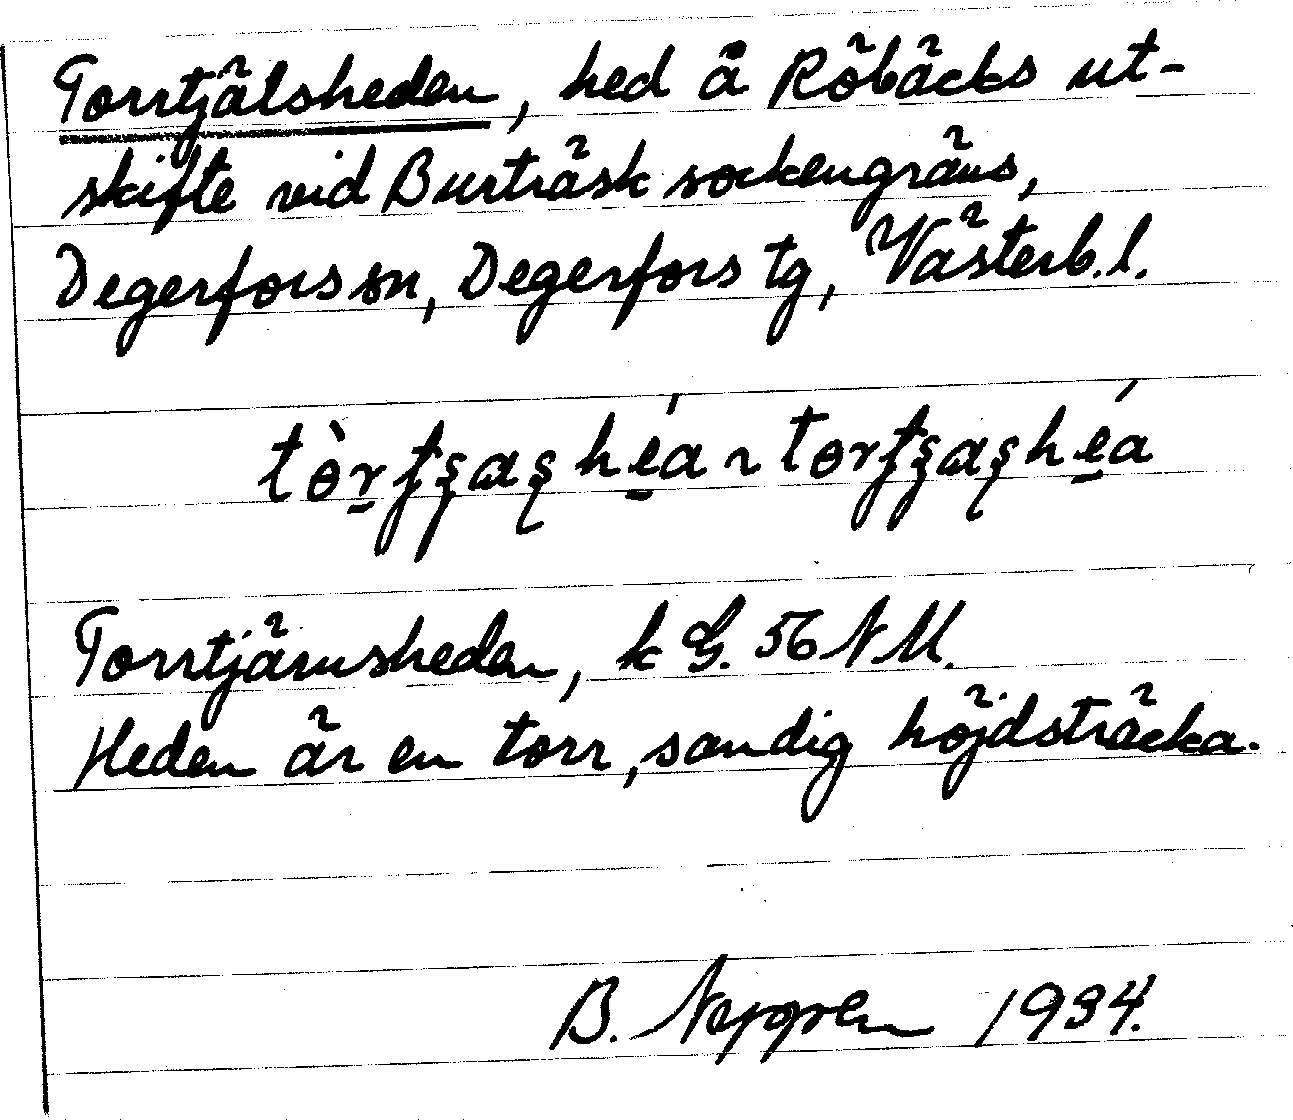 Torrtjälsheden, hed å Röbäcks ut-
skifte vid Burträsk sockengräns,
Degerfors sn, Degerfors tg, Västerb.l.
Torrtjärnsheden, k G. 56 N M.
Heden är en torr, sandig höjdsträcka.
B. 1934.